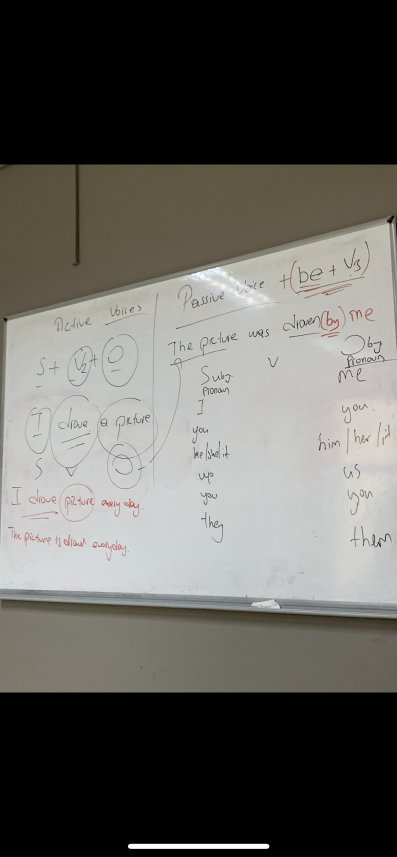 Active Voices
S + V2 + O
I drove a picture
S V O
I drove picture every day.
The picture is drawn everyday.
Passive Voice + (be + V3)
The picture was drawn (by) me
Suby. V Oby
Pronoun Pronoun
I me
you you.
he/she/it him/her/it
we us
you you
they them